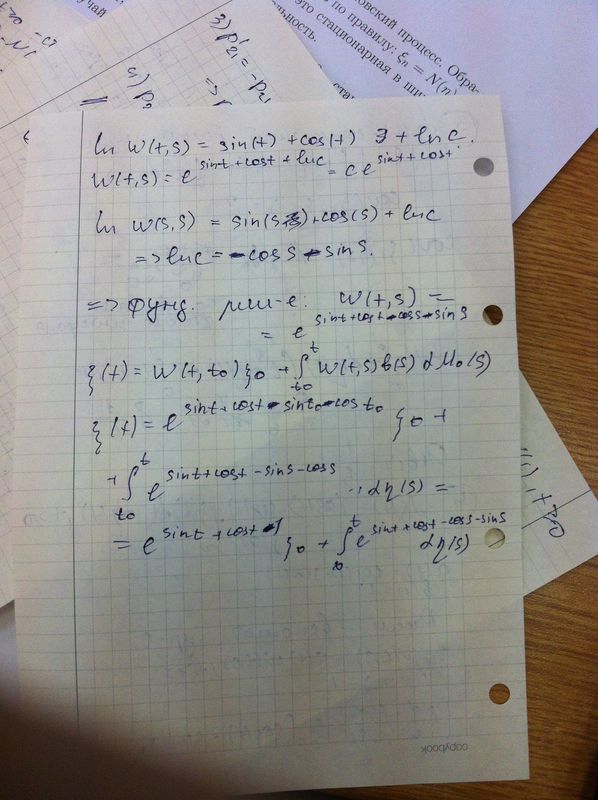 овский процесс. Обра-
по правилу: ξₙ = N(n)
это стационарная в ши
льность.
ста
учай
3) p'₂₁ = -p₂₁
ln W(t,s) = sin(t) + cos(t) + ln c.
W(t,s) = e^{sint + cost + lnc} = c e^{sint + cost}.
ln W(s,s) = sin(s) + cos(s) + ln c
=> ln c = - cos s - sin s.
=> Фунд. реш-е: W(t,s) =
= e^{sint + cost - cos s - sin s}
ξ(t) = W(t,t₀) ξ₀ + ∫_{t₀}^{t} W(t,s) b(s) dM₀(s)
ξ(t) = e^{sint + cost - sin t₀ - cos t₀} ξ₀ +
+ ∫_{t₀}^{t} e^{sint + cost - sin s - cos s} · dη(s) =
= e^{sint + cost - 1} ξ₀ + ∫_{0}^{t} e^{sint + cost - cos s - sin s} dη(s)
copybook